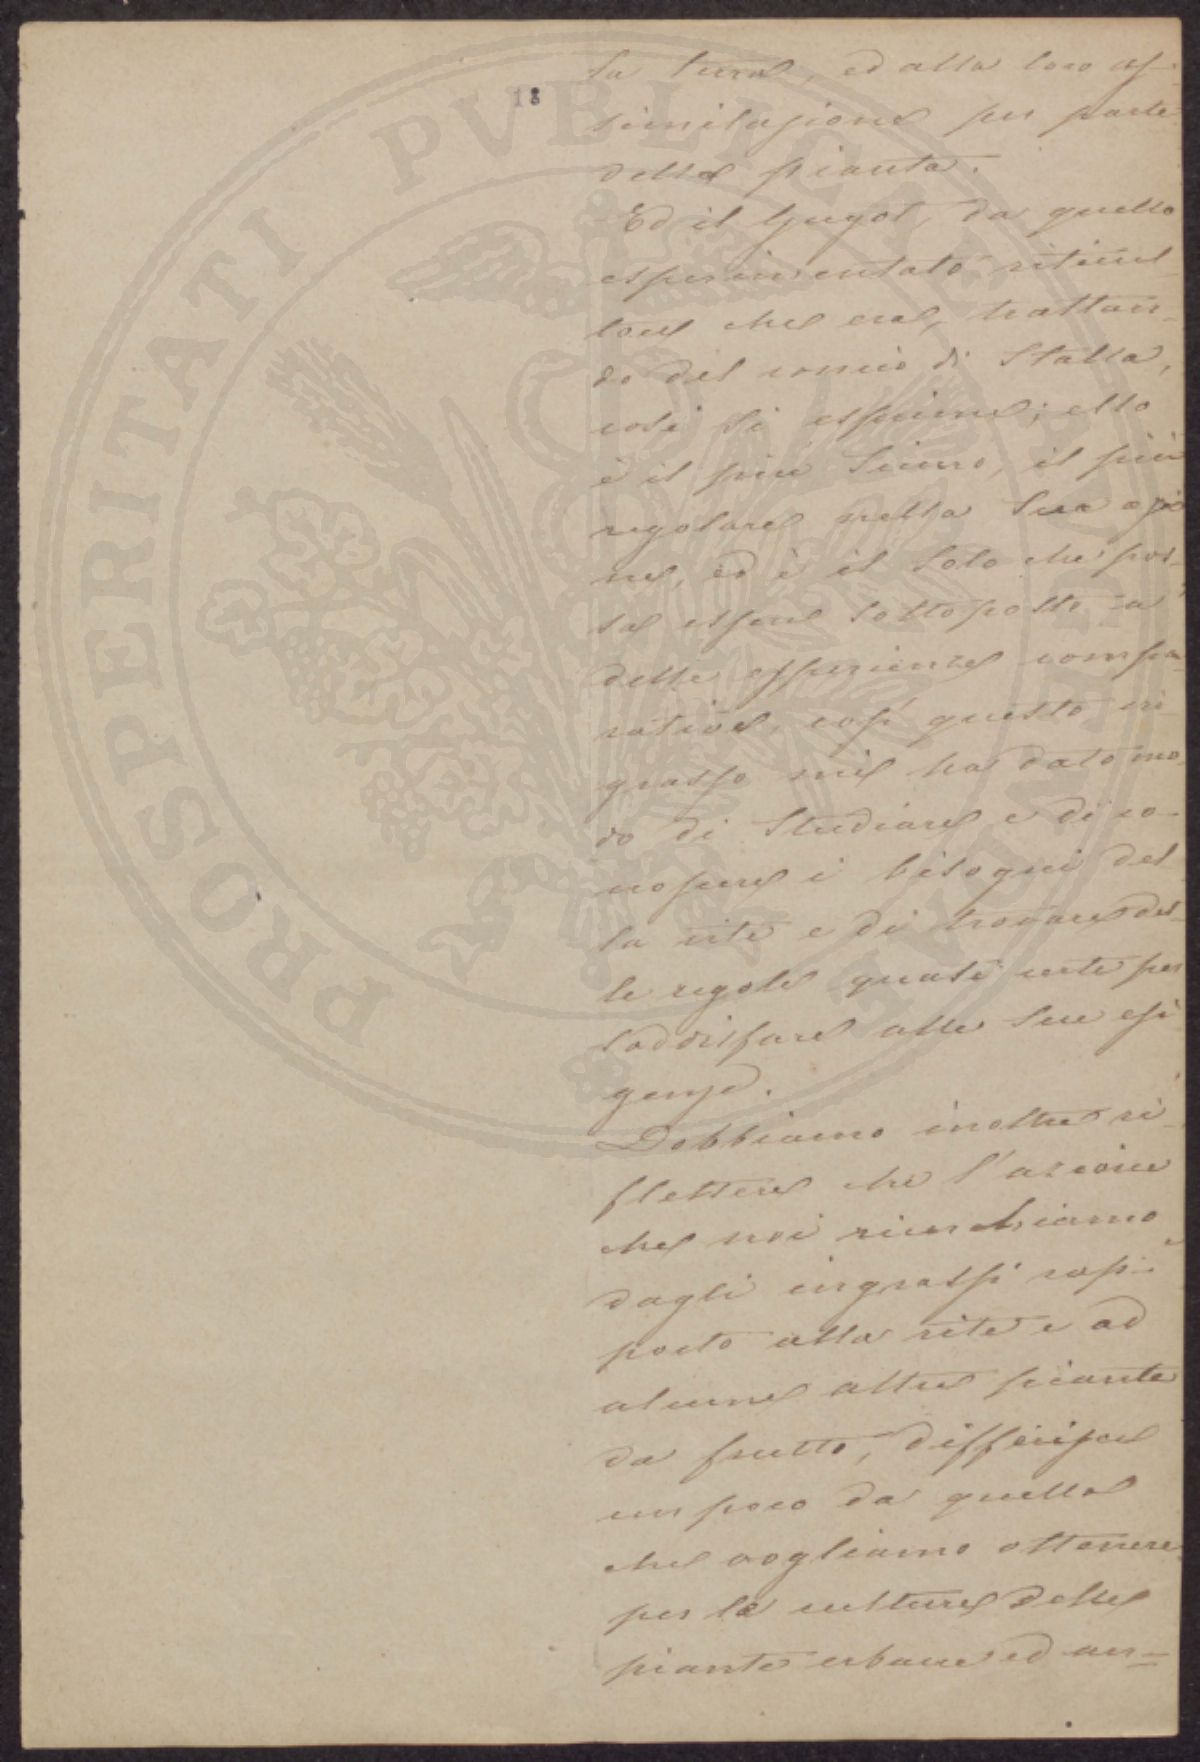 18
la terra, ed alla loro as-
similazione per parte
delle pianta.
Ed il Guyot, da quello
esperimentato
che era, trattan-
do del concio di Stalla,
così si esprime; esso
è il più sicuro, il più
regolare nella sua azio
ne, ed è il solo che pos-
sa essere sottoposto a
delle esperienze compa
rative, così questo in
grasso mi ha dato mo
do di studiare e di co-
noscere i bisogni del
la vite e di trovare del-
le regole quasi certe per
soddisfare alle sue esi
genze.
Dobbiamo inoltre ri
flettere che l'azione
che noi ricerchiamo
dagli ingrassi rap-
porto alla vite e ad
alcune altre piante
da frutto, differisce
un poco da quella
che vogliamo ottenere
per le culture delle
piante erbacee ed an=
PROSPERITATI PVBLICAE